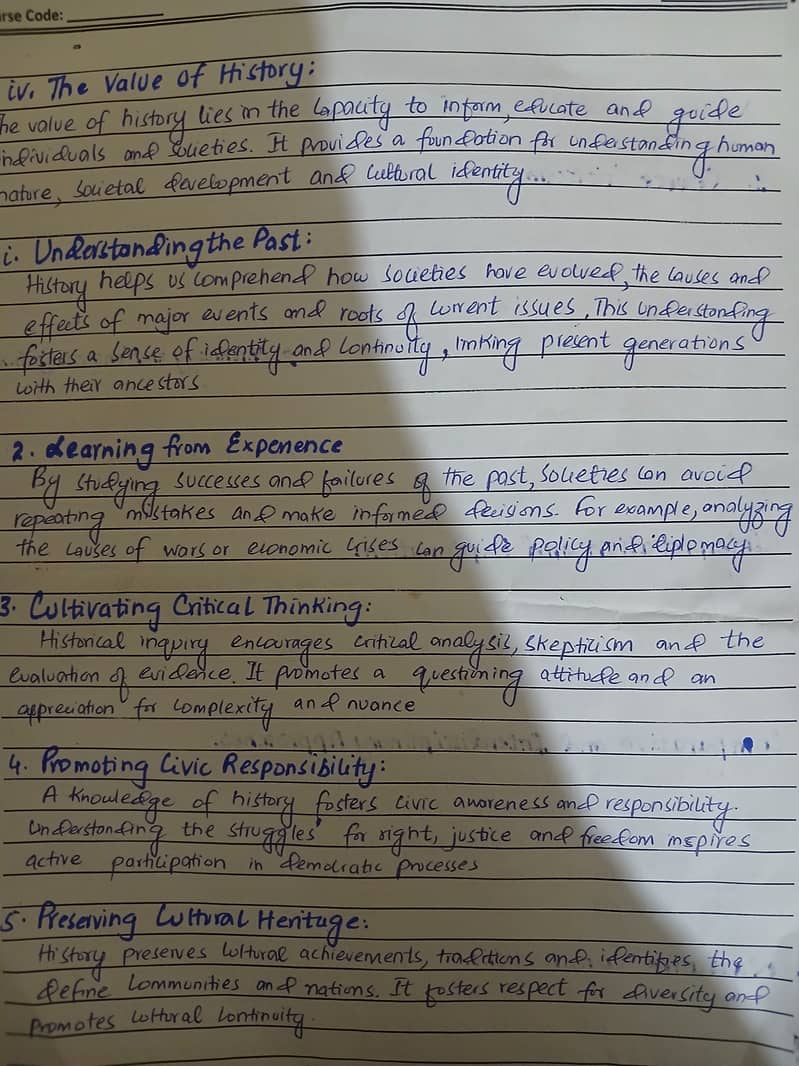 rse Code:
iv. The Value of History:
he value of history lies in the capacity to inform, educate and guide
individuals and societies. It provides a foundation for understanding human
nature, societal development and cultural identity...
i. Understanding the Past:
History helps us comprehend how societies have evolved, the causes and
effects of major events and roots of current issues. This understanding
fosters a sense of identity and continuity, linking present generations
with their ancestors
2. Learning from Experience
By studying successes and failures of the past, societies can avoid
repeating mistakes and make informed decisions. For example, analyzing
the causes of wars or economic crises can guide policy and diplomacy.
3. Cultivating Critical Thinking:
Historical inquiry encourages critical analysis, skepticism and the
evaluation of evidence. It promotes a questioning attitude and an
appreciation for complexity and nuance
4. Promoting Civic Responsibility:
A knowledge of history fosters civic awareness and responsibility.
Understanding the struggles for right, justice and freedom inspires
active participation in democratic processes
5. Preserving Cultural Heritage:
History preserves cultural achievements, traditions and identifies, tha
define communities and nations. It fosters respect for diversity and
promotes cultural continuity.